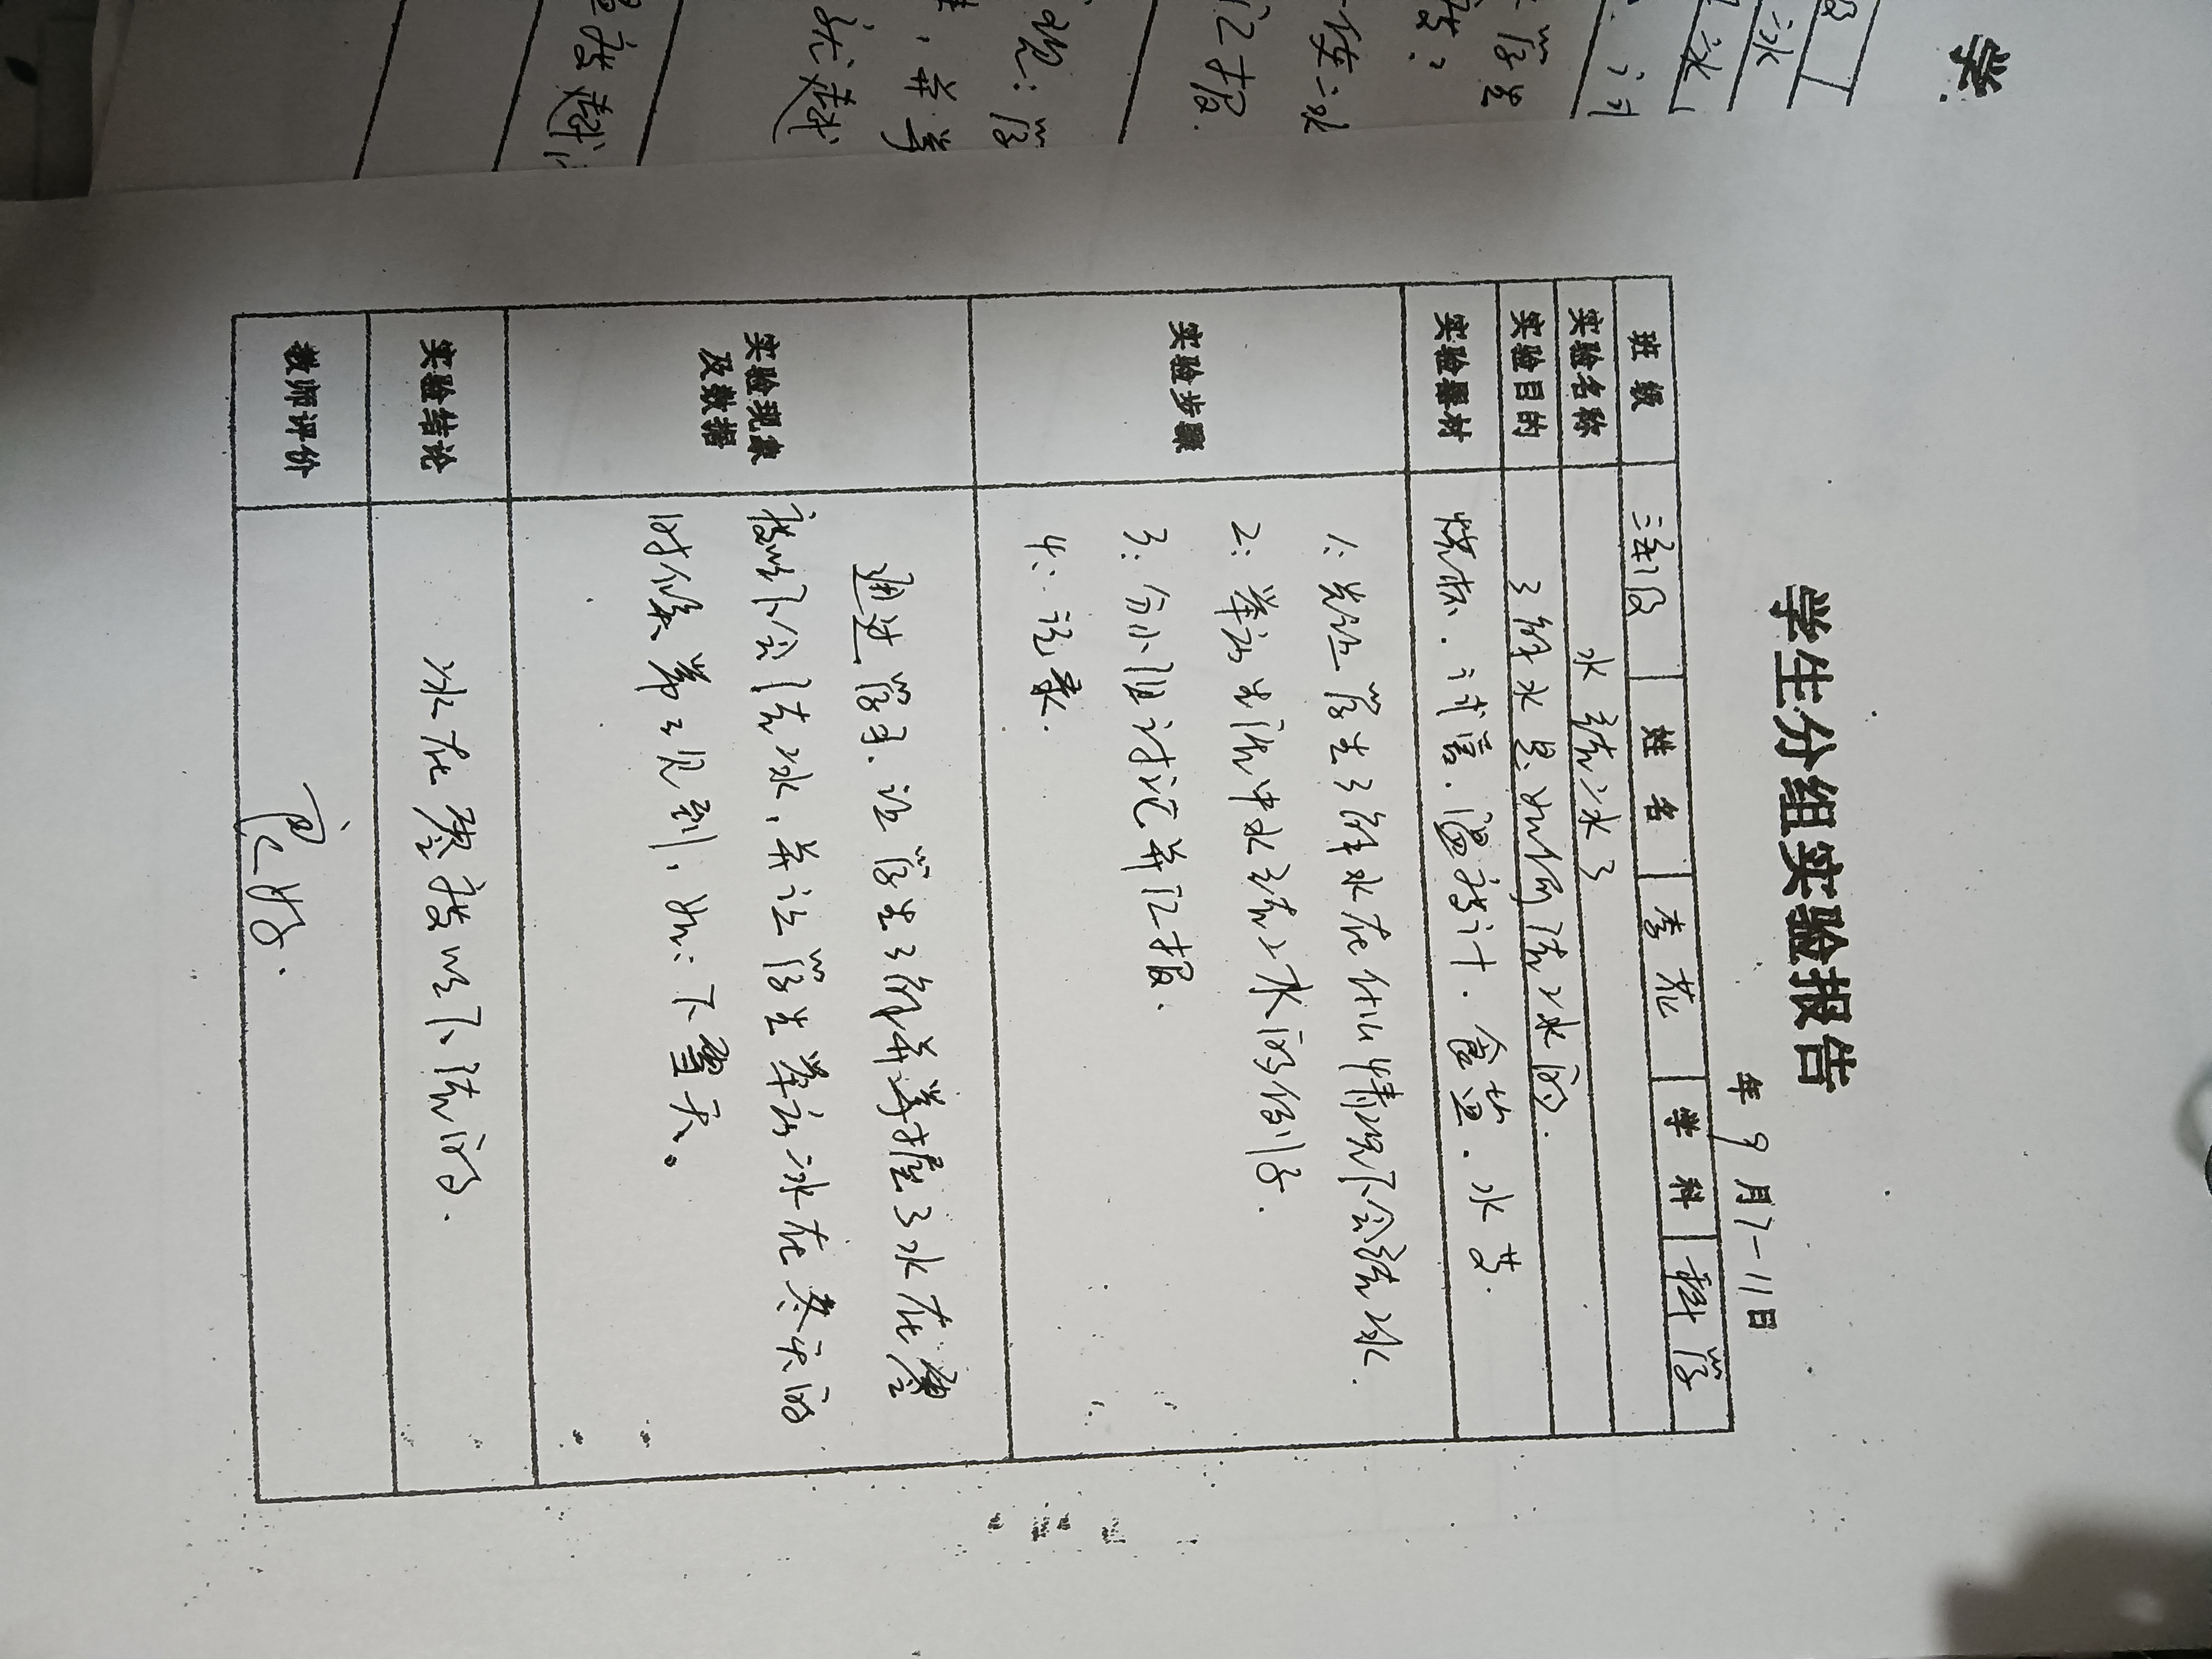 学生分组实验报告
年 9 月 7-11 日
班 级 三年级 姓 名 李花 学 科 科学
实验名称 水结冰了
实验目的 了解水是如何结冰的.
实验器材 烧杯.试管.温度计.食盐.水等.
实验步骤
1: 先让学生了解水在什么情况下会结冰.
2: 举出生活中水结冰的例子.
3: 分小组讨论并汇报.
4: 记录.
实验现象
及数据
通过学习.让学生了解并掌握了水在零
度以下会结冰,并让学生举出冰在冬天的
时候常常见到,如:下雪天。
实验结论 冰在零度以下结的.
教师评价 更好.
学